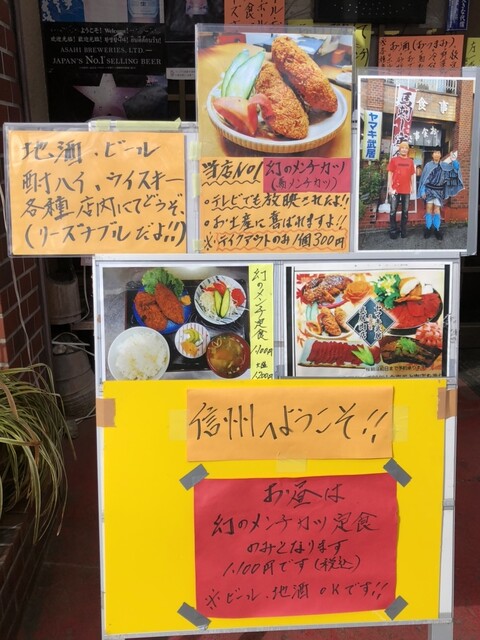 ようこそ! Welcome!
ASAHI BREWERIES, LTD.
JAPAN'S No.1 SELLING BEER
地酒、ビール
酎ハイ、ウイスキー
各種店内にてどうぞ。
(リーズナブルだよ!!)
当店No1 幻のメンチカツ
(馬メンチカツ)
○テレビでも放映されたよ!!
○お土産に喜ばれますよ!!
※テイクアウトのみ1個300円
ヤマキ武居
幻のメンチカツ定食
1,100円
信州へようこそ!!
お昼は
幻のメンチカツ定食
のみとなります
1,100円です(税込)
※ビール、地酒 OKです!!